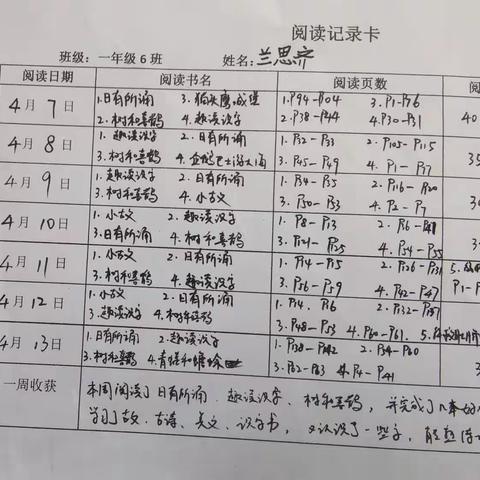 阅读记录卡
班级：一年级6班 姓名：兰思齐
阅读日期 阅读书名 阅读页数
4月7日 1.日有所诵 3.猫头鹰城堡 1.P94-P104 3.P1-P76 40
2.树和喜鹊 4.趣读汉字 2.P38-P44 4.P30-P31
4月8日 1.趣读汉字 2.日有所诵 1.P32-P33 2.P105-P115
3.树和喜鹊 3.P45-P49 4.P1-P7
4月9日 1.趣读汉字 2.日有所诵 1.P34-P35 2.P116-P120
3.树和喜鹊 4.小古文 3.P50-P53 4.P2-P7
4月10日 1.小古文 2.趣读汉字 1.P8-P13
3.日有所诵 4.树和喜鹊 3.P121-P125 4.P54-P55
4月11日 1.小古文 2.日有所诵 1.P14-P15 2.P126-P131
3.树和喜鹊 4.趣读汉字 3.P56-P59 4.P42-P47
4月12日 1.小古文 2.日有所诵 1.P14. P16 2.P132-P137
3.趣读汉字 4.树和喜鹊 3.P48-P53 4.P60-P61.
4月13日 1.日有所诵 2.趣读汉字 2.P54-P60
3.树和喜鹊 4.青蛙和蟾蜍 3.P62-P63 4.P4-P41
一周收获 本周阅读了日有所诵、趣读汉字、树和喜鹊，并完成了
学习了古文、古诗、美文、识字书，又认识了一些字，